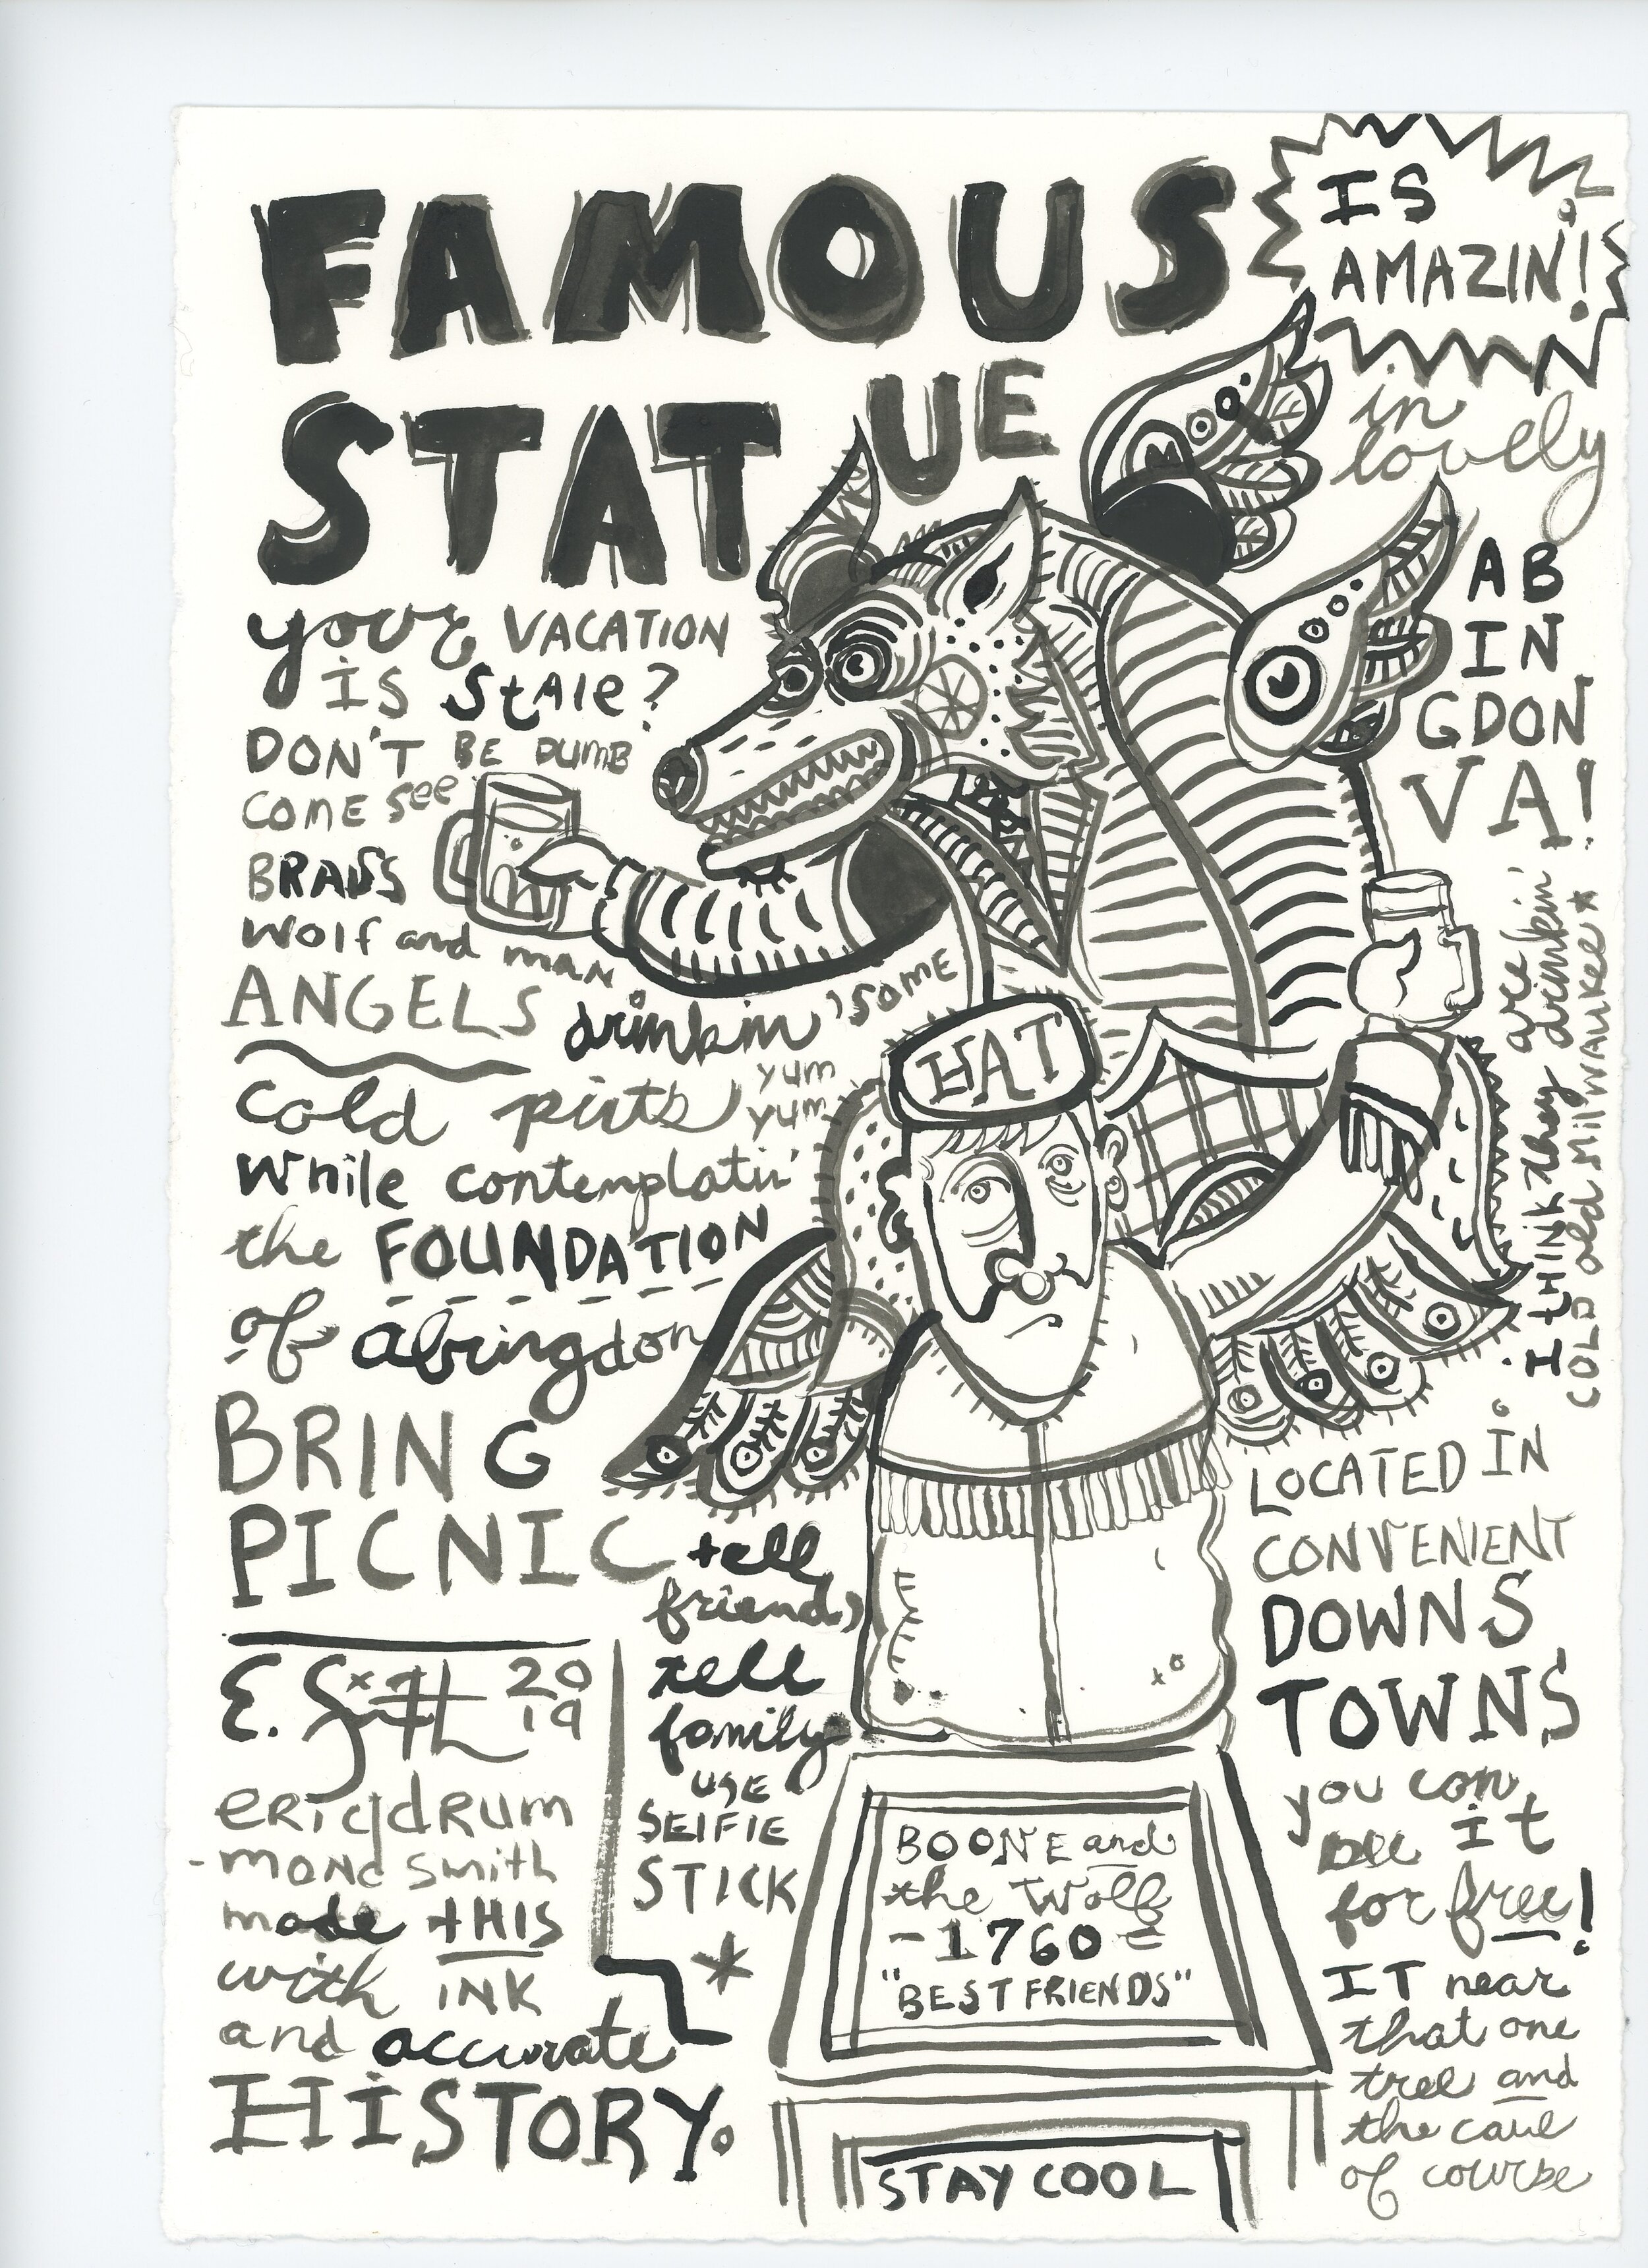 FAMOUS
STATUE
IS
AMAZIN'!
in
lovely
AB
IN
GDON
VA!
your VACATION
IS StAle?
DON'T BE DUMB
COME see
BRASS
Wolf and man
ANGELS drinkin' SOME
Cold pints yum
yum
While contemplatin'
the FOUNDATION
of abringdon
BRING
PICNIC
tell
friends
tell
family
USE
SElFIE
STICK
*
I tHINK they are drinkin'
COLD old MilWAUKEE*
HAT
LOCATED IN
CONVENIENT
DOWNS
TOWNS
you can
see it
for free!
IT near
that one
tree and
the cave
of course
BOONE and
the Wolf
-1760-
"BEST FRIENDS"
STAY COOL
E. Smith 20
19
ERic drum
-mond smith
made tHIS
with INK
and accurate
HiSTORY.